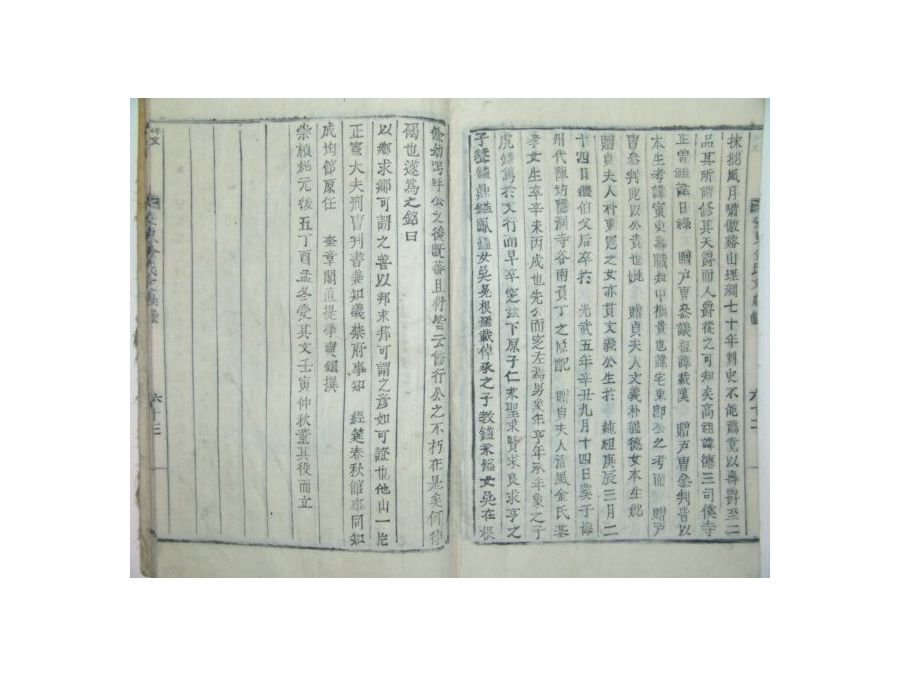 抹拙風月嘯傲谿山理湖七十年刺史不能薦竟以壽爵至二
品其所謂修其天爵而人爵從之可知矣高祖諱德三司僕寺
正曾祖諱日祿 贈戶曹參議祖諱載漢 贈戶曹參判皆以
本生考諱寅東壽職知中樞貴也諱宅東卽公之考而 贈戶
曹參判此以公貴也妣 贈貞夫人文義朴龍德女本生妣
贈貞夫人朴東憲之女亦貫文義公生於 純祖庚辰三月二
十四日 伯父后卒於 光武五年辛丑九月十四日葬于
州代陣坊聽洞寺谷南負丁之原配 贈貞夫人淸風金氏基
孝女生卒辛未丙戌也先公而窆左焉男象年亨年承年象之子
虎鎰篤於文行而早卒窆茲下原子仁來聖求賢求良求亨之
子鎰鼎鎰臥鎰女吳晃根 載倬承之子敎鎰永鎰女吳在根
餘幼嗚呼公之後旣蕃且衍皆云飭行公之不朽在是矣何待
碣也遂爲之銘曰
以鄕求鄕可謂之善以邦求邦可謂之彦如可證也他山一片
正憲大夫刑曹判書兼知義禁府事知 經筵春秋館事同知
成均館原任 奎章閣直提學 鎭撰
崇禎紀元後五丁酉孟冬受其文壬寅仲秋董其役而立
六十三